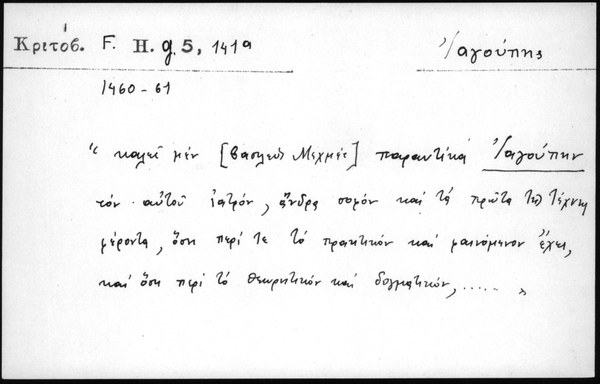 Κριτόβ. F. H. g. 5, 141a Ἰαγούπης
1460 - 61
“ καλεῖ μὲν [βασιλεὺς Μεχμέτ] παραυτίκα Ἰαγούπην
τὸν αὐτοῦ ἰατρόν, ἄνδρα σοφόν καὶ τὰ πρῶτα τῆς τέχνης
φέροντα, ὅση περί τε τὸ πρακτικόν καὶ φαινόμενον ἔχει,
καὶ ὅση περὶ τὸ θεωρητικόν καὶ δογματικόν, ..... ”